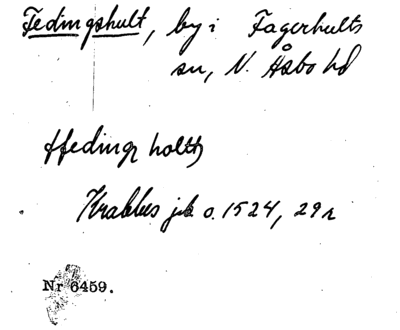 Fedingshult, by i Fagerhults
sn, N. Åsbo hd
ffeding holth
Krabbes jb o. 1524, 29 r
Nr 6459.